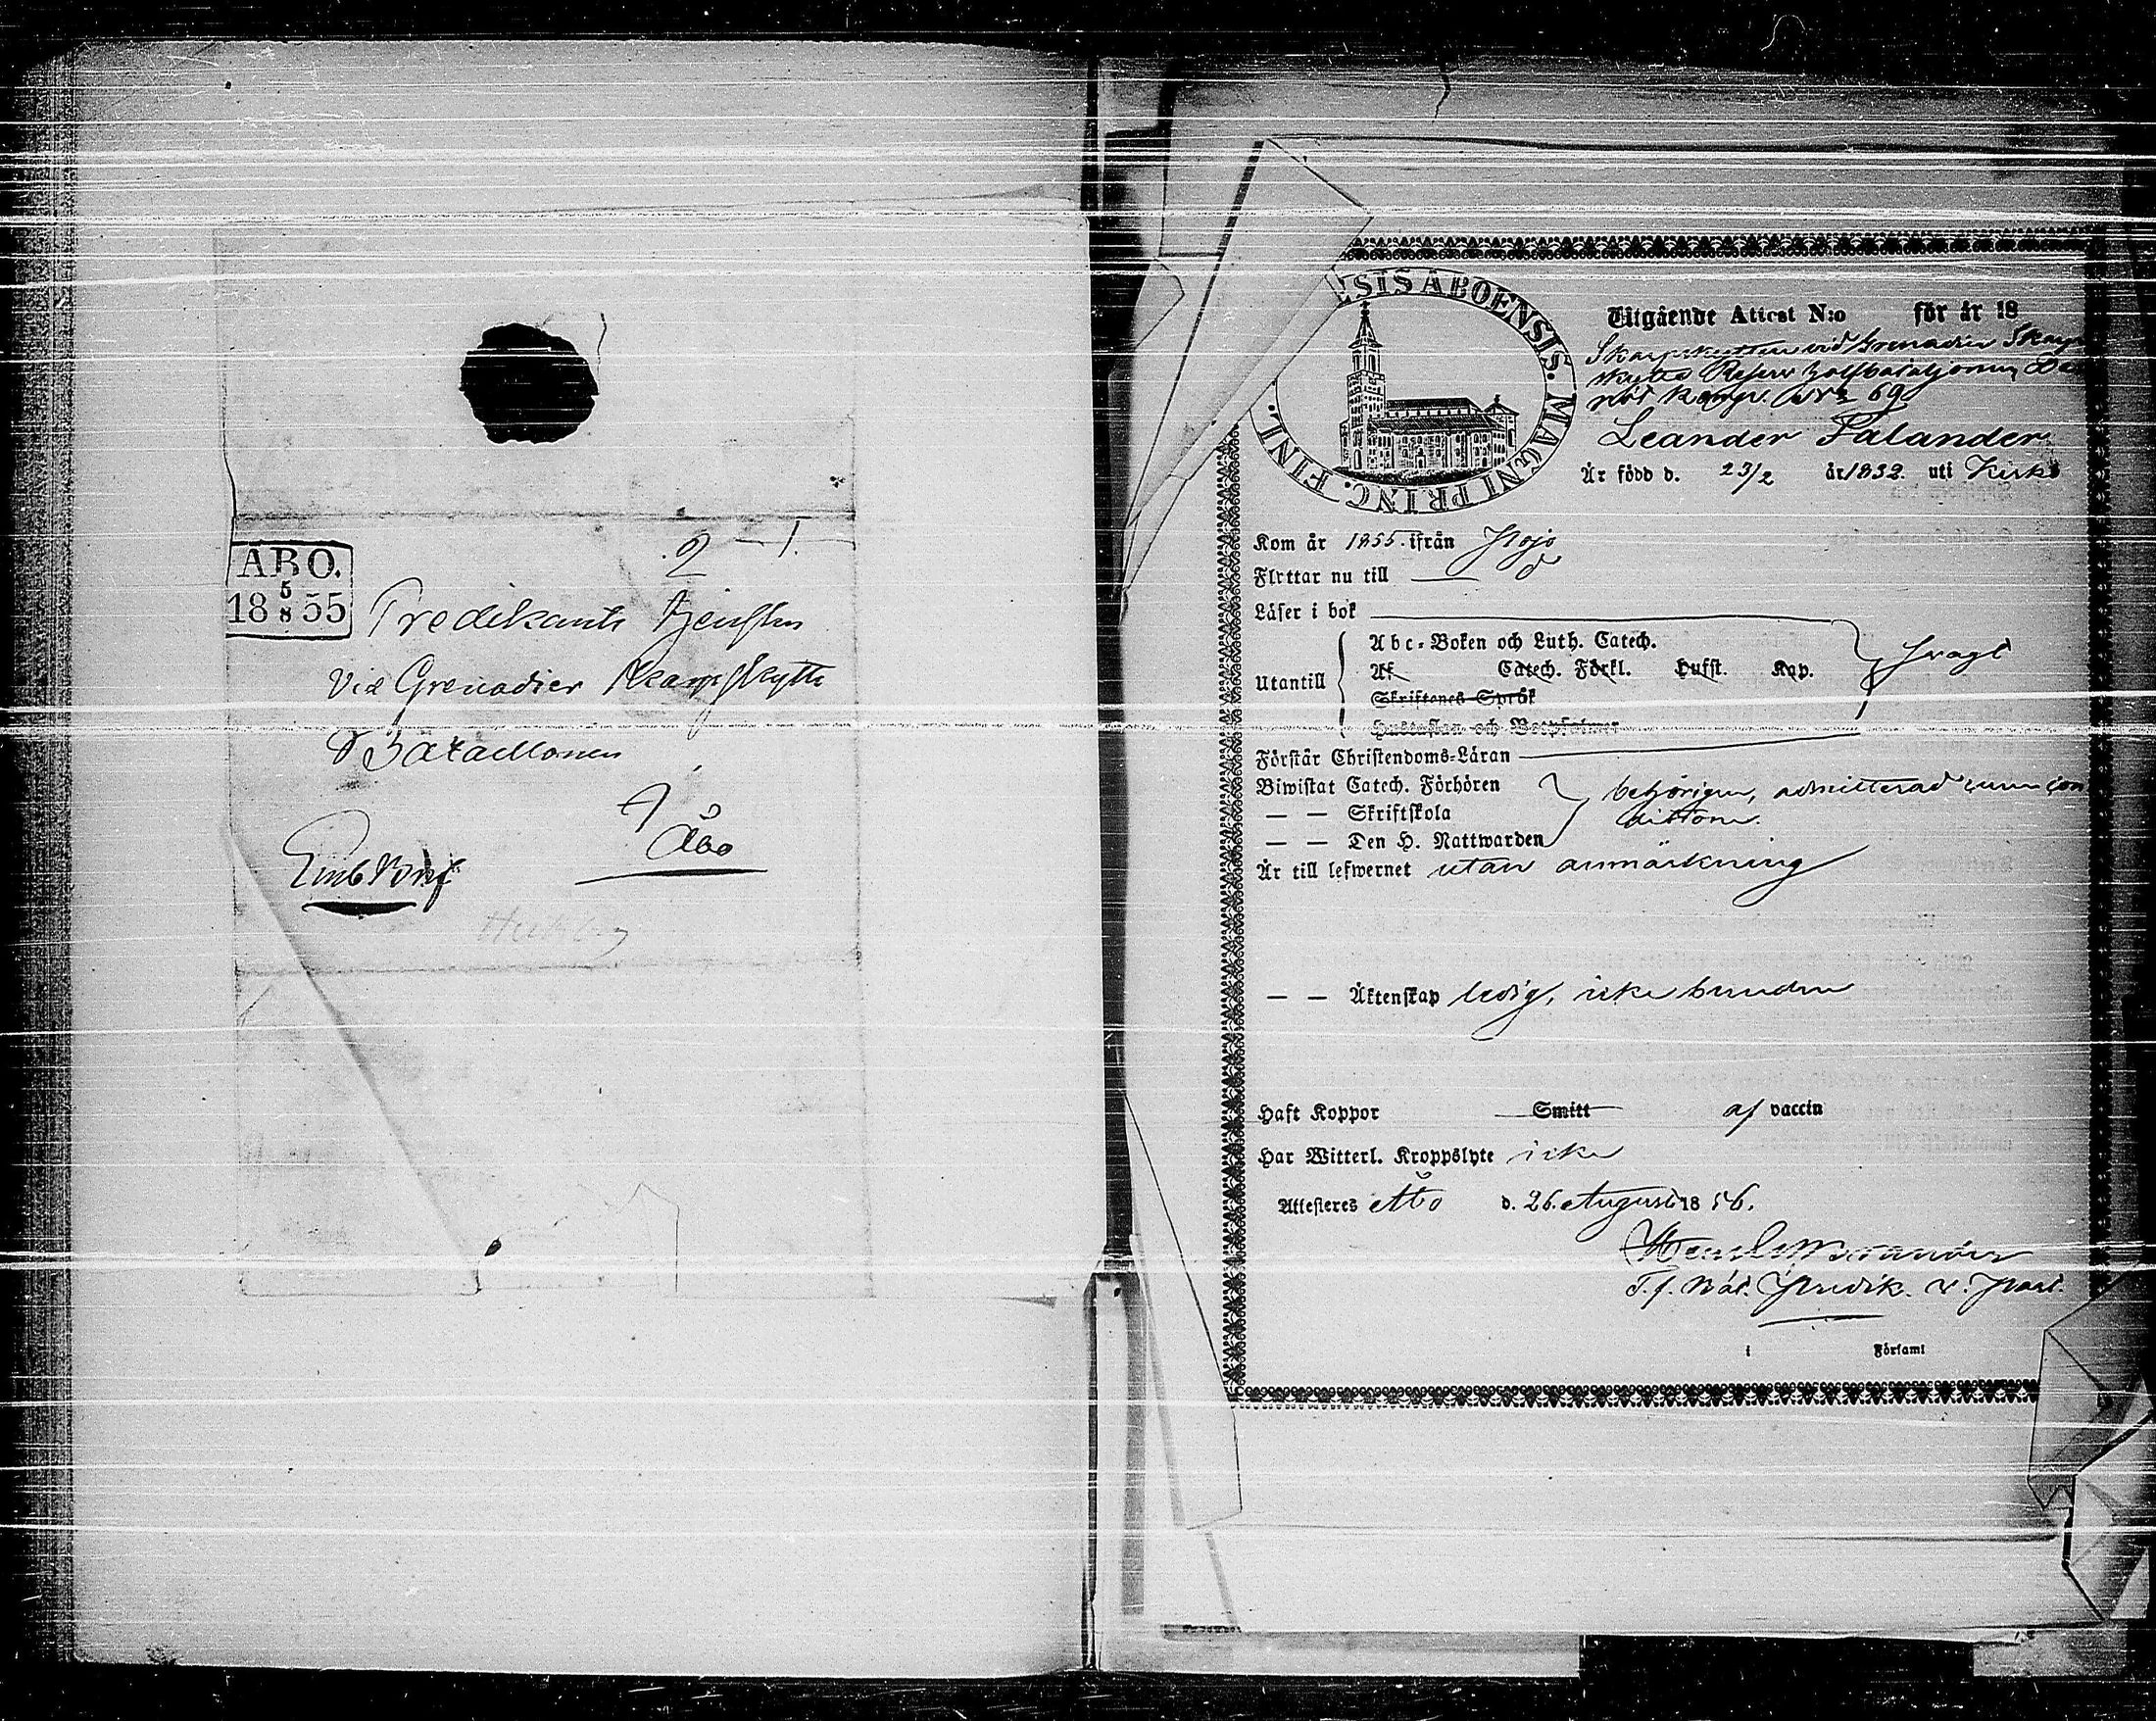 2 – 1.
ABO.
5
18 8 55
Predikants tjensten
vid Grenadier Skarpskytte
Bataillonen
Åbo
ENSIS ABOENSIS. MAGNI PRINC. FINL.
Utgående Attest N:o för år 18
Skarpskytten vid Grenadier Skarp
skytte Reserv halfbataljonen
Leander Palander
Är född d. 23/2 år 1832. uti Kisko
Kom år 1855. ifrån Pojo
Flyttar nu till —
Läser i bok
Abc-Boken och Luth. Catech.
Utantill
Af Catech. Förkl. Hufst. Kap.
svagt
Skriftenes Språk
Hustaflan och Botpsalmer
Förstår Christendoms-Läran
Biwistat Catech. Förhören
— — Skriftskola
— — Den H. Nattwarden
behörigen, admitterad
Är till lefwernet utan anmärkning
— — Äktenskap ledig, icke bunden
Haft Koppor Smitt af vaccin
Har Witterl. Kroppslyte icke
Attesteres Åbo d. 26. August 18 56.
T. f. Bat. Predik. v. Past.
i Församl